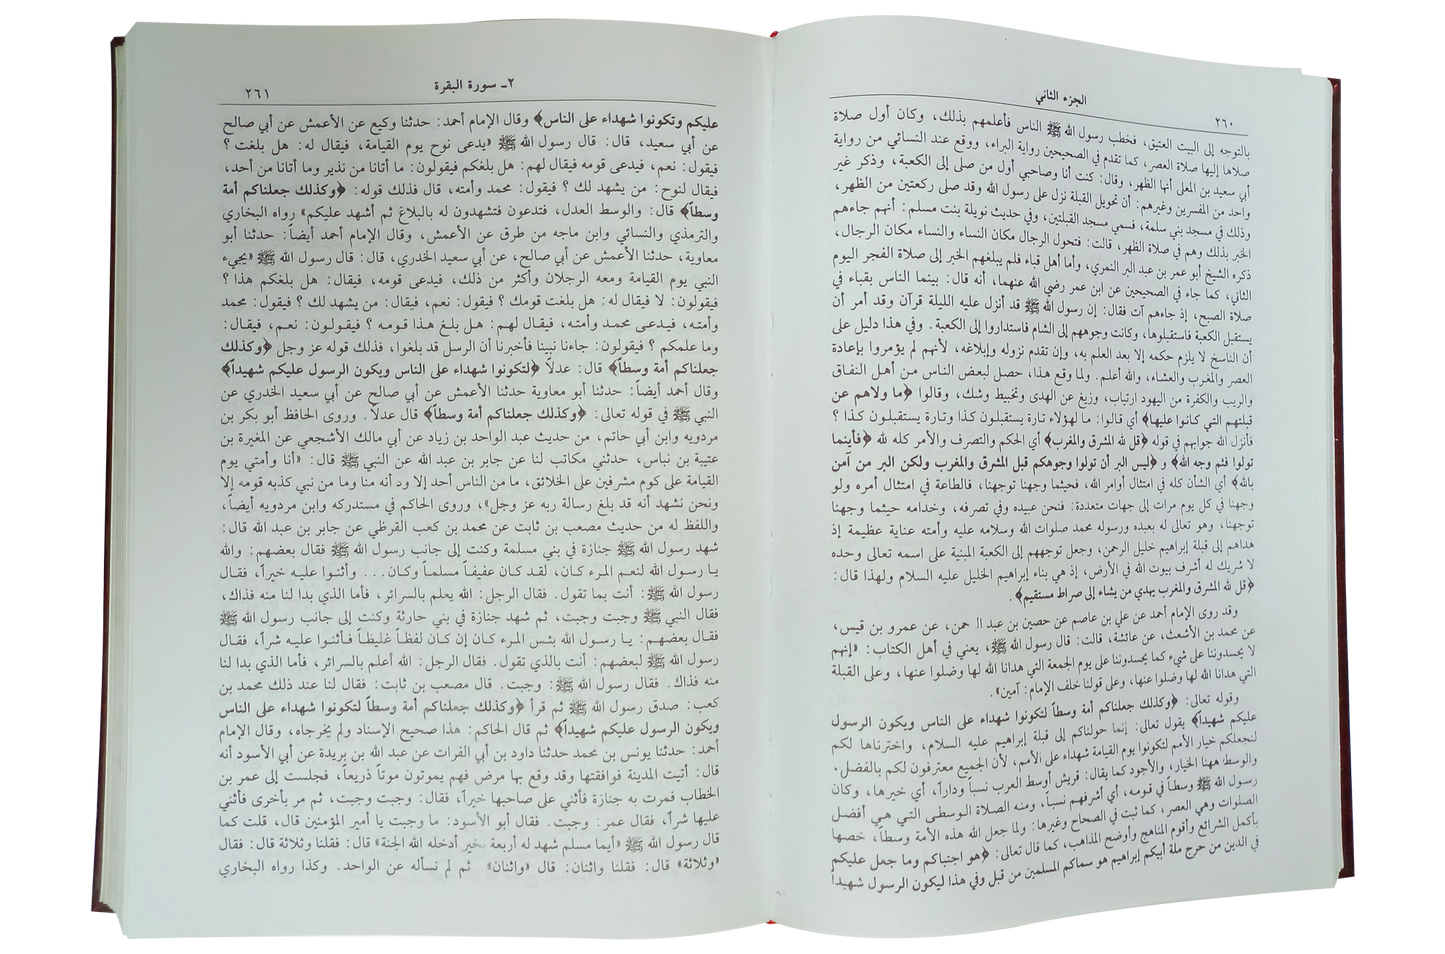 الجزء الثاني
٢٦٠
بالتوجه إلى البيت العتيق، فخطب رسول الله ﷺ الناس فأعلمهم بذلك، وكان أول صلاة
صلاها إليها صلاة العصر، كما تقدم في الصحيحين رواية البراء، ووقع عند النسائي من رواية
أبي سعيد بن المعلى أنها الظهر، وقال: كنت أنا وصاحبي أول من صلى إلى الكعبة، وذكر غير
واحد من المفسرين وغيرهم: أن تحويل القبلة نزل على رسول الله وقد صلى ركعتين من الظهر،
وذلك في مسجد بني سلمة، فسمي مسجد القبلتين، وفي حديث نويلة بنت مسلم: أنهم جاءهم
الخبر بذلك وهم في صلاة الظهر، قالت: فتحول الرجال مكان النساء والنساء مكان الرجال،
ذكره الشيخ أبو عمر بن عبد البر النمري، وأما أهل قباء فلم يبلغهم الخبر إلى صلاة الفجر اليوم
الثاني، كما جاء في الصحيحين عن ابن عمر رضي الله عنهما، أنه قال: بينما الناس بقباء في
صلاة الصبح، إذ جاءهم آت فقال: إن رسول الله ﷺ قد أنزل عليه الليلة قرآن وقد أمر أن
يستقبل الكعبة فاستقبلوها، وكانت وجوههم إلى الشام فاستداروا إلى الكعبة. وفي هذا دليل على
أن الناسخ لا يلزم حكمه إلا بعد العلم به، وإن تقدم نزوله وإبلاغه، لأنهم لم يؤمروا بإعادة
العصر والمغرب والعشاء، والله أعلم. ولما وقع هذا، حصل لبعض الناس من أهل النفاق
والريب والكفرة من اليهود ارتياب، وزيغ عن الهدى وتخبيط وشك، وقالوا ﴿ما ولاهم عن
قبلتهم التي كانوا عليها﴾ أي قالوا: ما لهؤلاء تارة يستقبلون كذا وتارة يستقبلون كذا ؟
فأنزل الله جوابهم في قوله ﴿قل لله المشرق والمغرب﴾ أي الحكم والتصرف والأمر كله لله ﴿فأينما
تولوا فثم وجه الله﴾ و ﴿ليس البر أن تولوا وجوهكم قبل المشرق والمغرب ولكن البر من آمن
بالله﴾ أي الشأن كله في امتثال أوامر الله، فحيثما وجهنا توجهنا، فالطاعة في امتثال أمره ولو
وجهنا في كل يوم مرات إلى جهات متعددة: فنحن عبيده وفي تصرفه، وخدامه حيثما وجهنا
توجهنا، وهو تعالى له بعبده ورسوله محمد صلوات الله وسلامه عليه وأمته عناية عظيمة إذ
هداهم إلى قبلة إبراهيم خليل الرحمن، وجعل توجههم إلى الكعبة المبنية على اسمه تعالى وحده
لا شريك له أشرف بيوت الله في الأرض، إذ هي بناء إبراهيم الخليل عليه السلام ولهذا قال:
﴿قل لله المشرق والمغرب يهدي من يشاء إلى صراط مستقيم﴾.
وقد روى الإمام أحمد عن علي بن عاصم عن حصين بن عبد الرحمن، عن عمرو بن قيس،
عن محمد بن الأشعث، عن عائشة، قالت: قال رسول الله ﷺ، يعني في أهل الكتاب: «إنهم
لا يحسدوننا على شيء كما يحسدوننا على يوم الجمعة التي هدانا الله لها وضلوا عنها، وعلى القبلة
التي هدانا الله لها وضلوا عنها، وعلى قولنا خلف الإمام: آمين».
وقوله تعالى: ﴿وكذلك جعلناكم أمة وسطاً لتكونوا شهداء على الناس ويكون الرسول
عليكم شهيداً﴾ يقول تعالى: إنما حولناكم إلى قبلة إبراهيم عليه السلام، واخترناها لكم
لنجعلكم خيار الأمم لتكونوا يوم القيامة شهداء على الأمم، لأن الجميع معترفون لكم بالفضل،
والوسط ههنا الخيار، والأجود كما يقال: قريش أوسط العرب نسباً وداراً، أي خيرها، وكان
رسول الله ﷺ وسطاً في قومه، أي أشرفهم نسباً، ومنه الصلاة الوسطى التي هي أفضل
الصلوات وهي العصر، كما ثبت في الصحاح وغيرها: ولما جعل الله هذه الأمة وسطاً، خصها
بأكمل الشرائع وأقوم المناهج وأوضح المذاهب، كما قال تعالى: ﴿هو اجتباكم وما جعل عليكم
في الدين من حرج ملة أبيكم إبراهيم هو سماكم المسلمين من قبل وفي هذا ليكون الرسول شهيداً
٢ـ سورة البقرة
٢٦١
عليكم وتكونوا شهداء على الناس﴾ وقال الإمام أحمد: حدثنا وكيع عن الأعمش عن أبي صالح
عن أبي سعيد، قال: قال رسول الله ﷺ «يدعى نوح يوم القيامة، فيقال له: هل بلغت ؟
فيقول: نعم، فيدعى قومه فيقال لهم: هل بلغكم فيقولون: ما أتانا من نذير وما أتانا من أحد،
فيقال لنوح: من يشهد لك ؟ فيقول: محمد وأمته، قال فذلك قوله: ﴿وكذلك جعلناكم أمة
وسطاً﴾ قال: والوسط العدل، فتدعون فتشهدون له بالبلاغ ثم أشهد عليكم» رواه البخاري
والترمذي والنسائي وابن ماجه من طرق عن الأعمش، وقال الإمام أحمد أيضاً: حدثنا أبو
معاوية، حدثنا الأعمش عن أبي صالح، عن أبي سعيد الخدري، قال: قال رسول الله ﷺ «يجيء
النبي يوم القيامة ومعه الرجلان وأكثر من ذلك، فيدعى قومه، فيقال: هل بلغكم هذا ؟
فيقولون: لا فيقال له: هل بلغت قومك ؟ فيقول: نعم، فيقال: من يشهد لك ؟ فيقول: محمد
وأمته، فيدعى محمد وأمته، فيقال لهم: هل بلغ هذا قومه ؟ فيقولون: نعم، فيقال:
وما علمكم ؟ فيقولون: جاءنا نبينا فأخبرنا أن الرسل قد بلغوا، فذلك قوله عز وجل ﴿وكذلك
جعلناكم أمة وسطاً﴾ قال: عدلاً ﴿لتكونوا شهداء على الناس ويكون الرسول عليكم شهيداً﴾
وقال أحمد أيضاً: حدثنا أبو معاوية حدثنا الأعمش عن أبي صالح عن أبي سعيد الخدري عن
النبي ﷺ في قوله تعالى: ﴿وكذلك جعلناكم أمة وسطاً﴾ قال عدلاً. وروى الحافظ أبو بكر بن
مردويه وابن أبي حاتم، من حديث عبد الواحد بن زياد عن أبي مالك الأشجعي عن المغيرة بن
عتيبة بن نباس، حدثني مكاتب لنا عن جابر بن عبد الله عن النبي ﷺ قال: «أنا وأمتي يوم
القيامة على كوم مشرفين على الخلائق، ما من الناس أحد إلا ود أنه منا وما من نبي كذبه قومه إلا
ونحن نشهد أنه قد بلغ رسالة ربه عز وجل»، وروى الحاكم في مستدركه وابن مردويه أيضاً،
واللفظ له من حديث مصعب بن ثابت عن محمد بن كعب القرظي عن جابر بن عبد الله قال:
شهد رسول الله ﷺ جنازة في بني مسلمة وكنت إلى جانب رسول الله ﷺ فقال بعضهم: والله
يا رسول الله لنعم المرء كان، لقد كان عفيفاً مسلماً وكان... وأثنوا عليه خيراً، فقال
رسول الله ﷺ: أنت بما تقول. فقال الرجل: الله يعلم بالسرائر، فأما الذي بدا لنا منه فذاك،
فقال النبي ﷺ وجبت وجبت، ثم شهد جنازة في بني حارثة وكنت إلى جانب رسول الله ﷺ
فقال بعضهم: يا رسول الله بئس المرء كان إن كان لفظاً غليظاً فأثنوا عليه شراً، فقال
رسول الله ﷺ لبعضهم: أنت بالذي تقول. فقال الرجل: الله أعلم بالسرائر، فأما الذي بدا لنا
منه فذاك. فقال رسول الله ﷺ: وجبت. قال مصعب بن ثابت: فقال لنا عند ذلك محمد بن
كعب: صدق رسول الله ﷺ ثم قرأ ﴿وكذلك جعلناكم أمة وسطاً لتكونوا شهداء على الناس
ويكون الرسول عليكم شهيداً﴾ ثم قال الحاكم: هذا صحيح الإسناد ولم يخرجاه، وقال الإمام
أحمد: حدثنا يونس بن محمد حدثنا داود بن أبي الفرات عن عبد الله بن بريدة عن أبي الأسود أنه
قال: أتيت المدينة فوافقتها وقد وقع بها مرض فهم يموتون موتاً ذريعاً، فجلست إلى عمر بن
الخطاب فمرت به جنازة فأثني على صاحبها خيراً، فقال: وجبت وجبت، ثم مر بأخرى فأثني
عليها شراً، فقال عمر: وجبت. فقال أبو الأسود: ما وجبت يا أمير المؤمنين قال، قلت كما
قال رسول الله ﷺ «أيما مسلم شهد له أربعة بخير أدخله الله الجنة» قال: فقلنا وثلاثة قال: فقال
«وثلاثة» قال: فقلنا واثنان: قال «واثنان» ثم لم نسأله عن الواحد. وكذا رواه البخاري